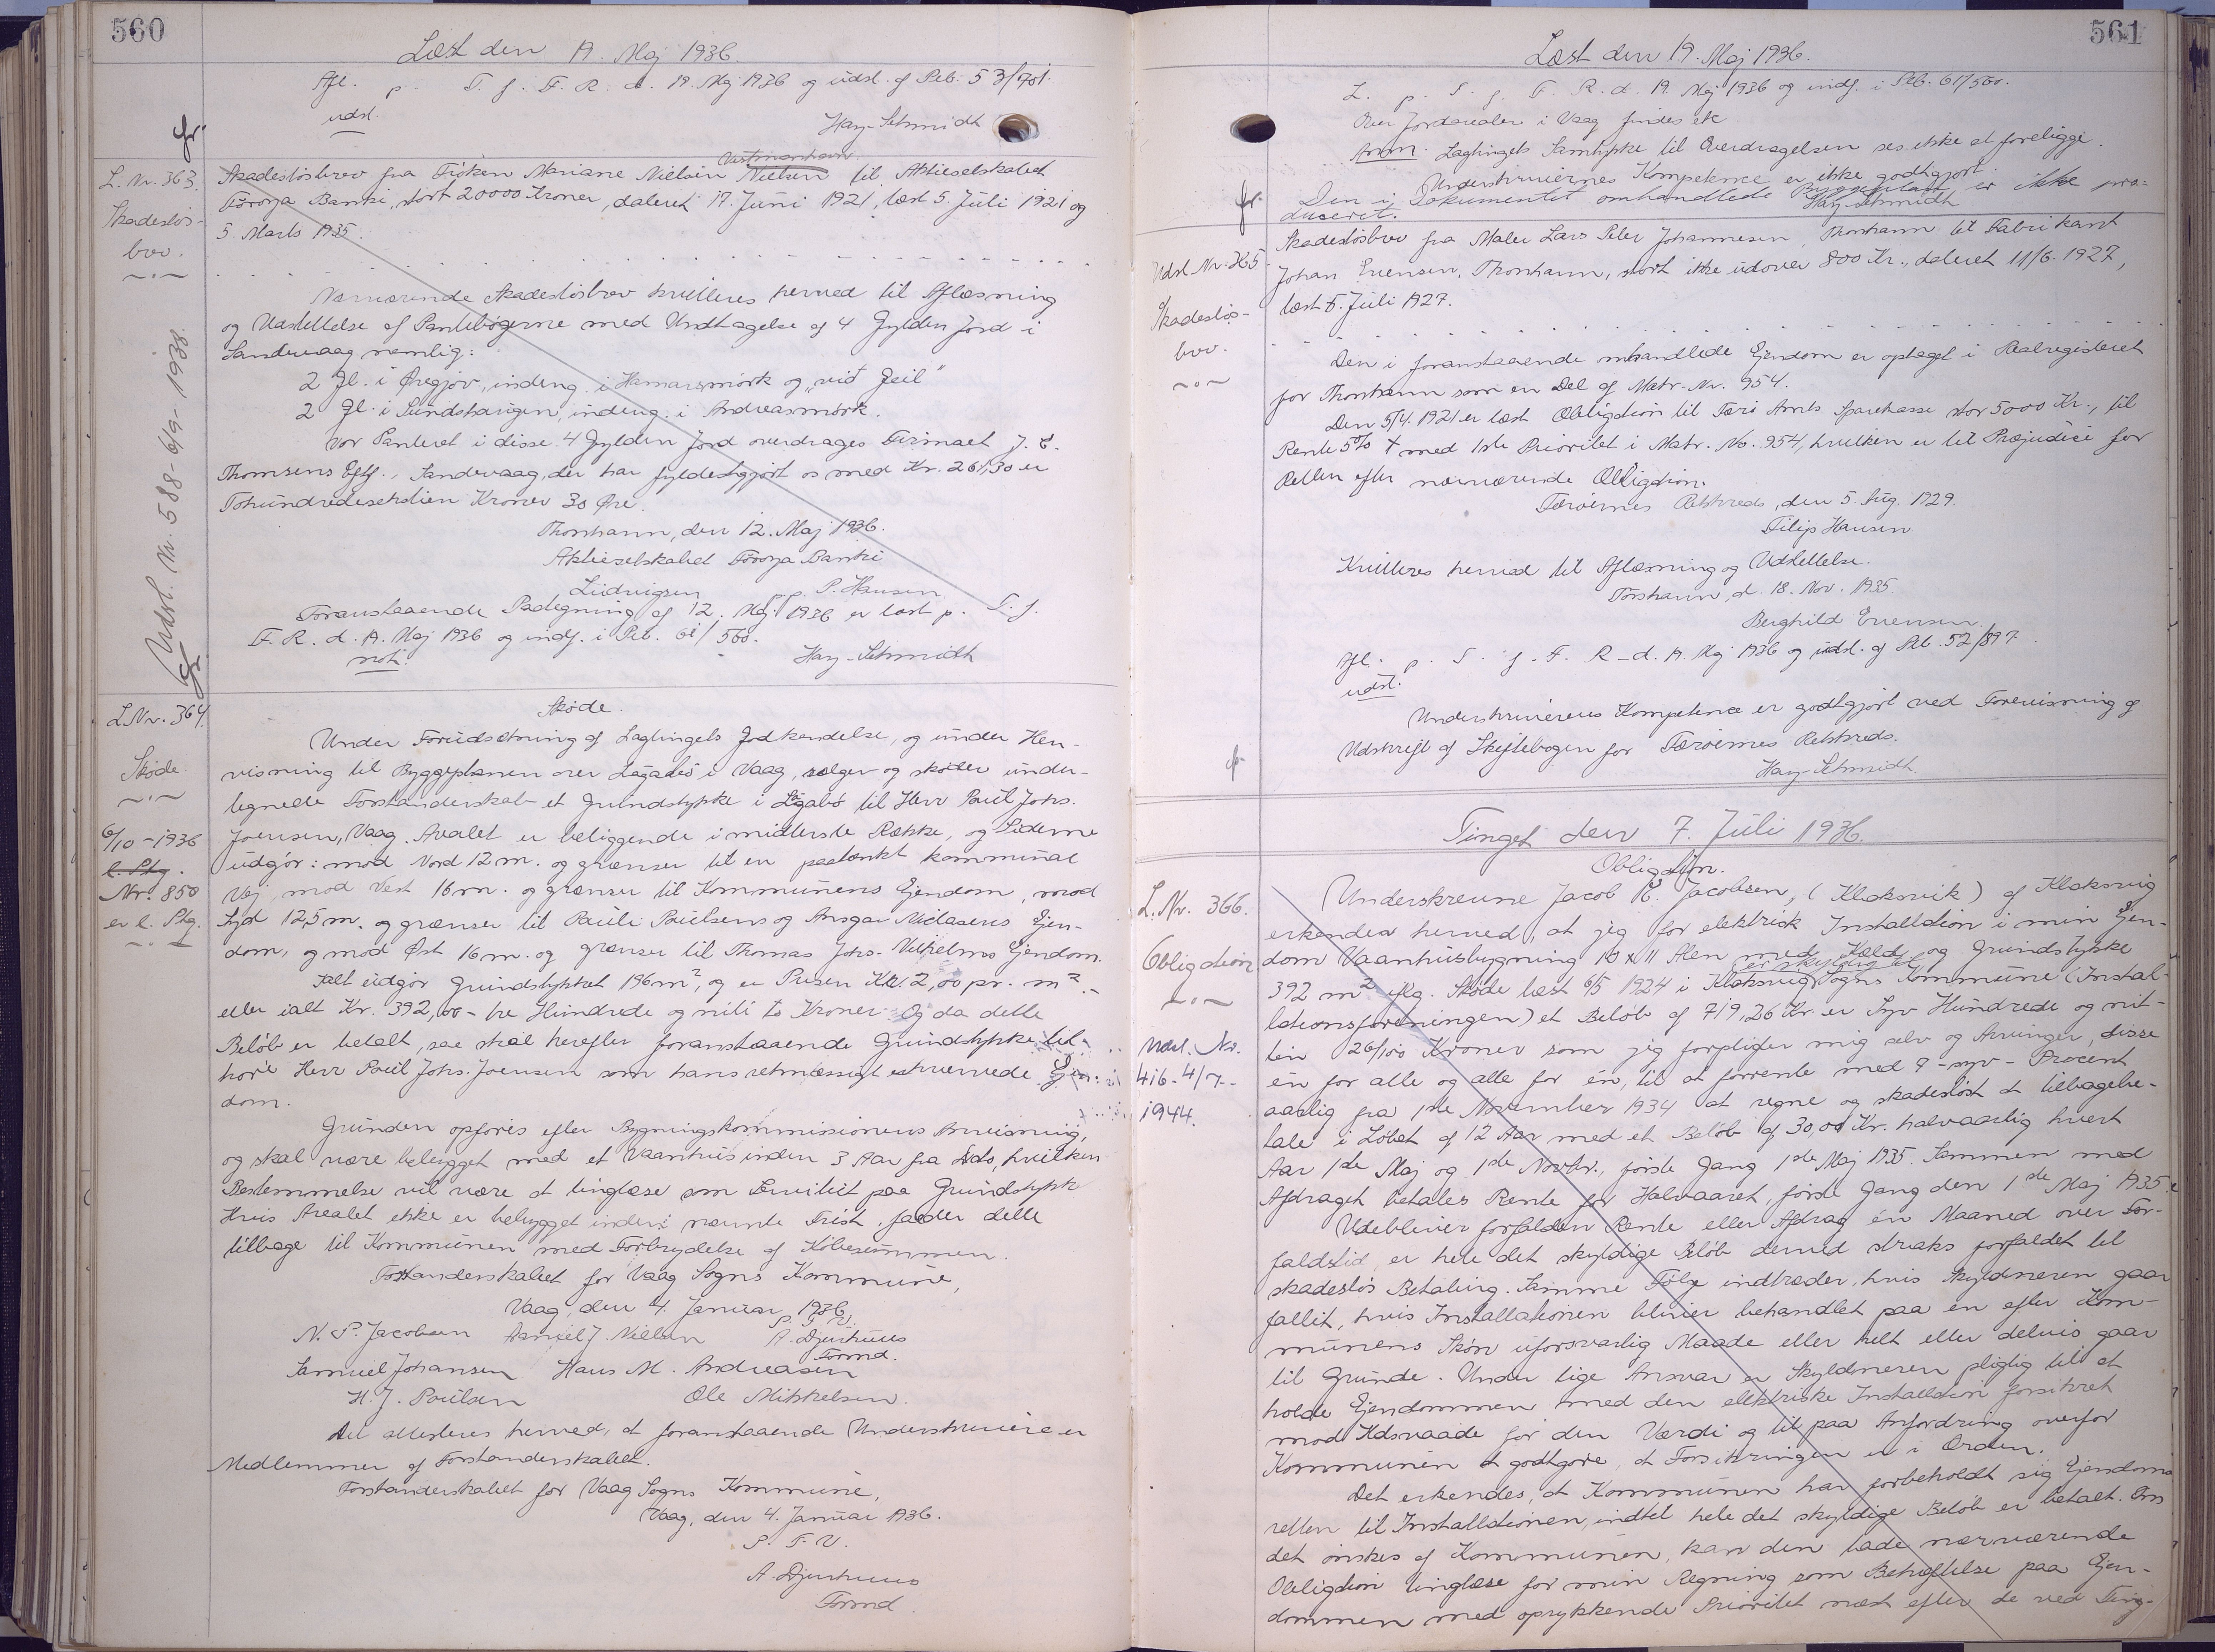 560
Læst den 19. Maj 1936.
Afl. p. T. f. F. R. d. 19. Maj 1936 og udsl. af Pb. 53/701.
udsl.
Hay-Schmidt
L. Nr. 363.
Skadesløs-
brev.
Udsl. Nr. 588-6/9-1938.
Vestmanhavn
Skadesløsbrev fra Frøken Mariane Nielsen Nielsen til Aktieselskabet
Føroya Banki, stort 20000 Kroner, dateret 17. Juni 1921, læst 5. Juli 1921 og
5. Marts 1935.
Nærværende Skadesløsbrev kvitteres herved til Aflæsning
og Udslettelse af Pantebøgerne med Undtagelse af 4 Gylden Jord i
Sandevaag nemlig:
2 Gl. i Øregjov, indeng. i Hamarsmørk og "við Geil"
2 Gl. i Sundshaugen, indeng. i Andreasmørk.
Vor Panteret i disse 4 Gylden Jord overdrages Firmaet J. E.
Thomsens Eftf., Sandevaag, der har fyldestgjort os med Kr. 261,30 er
Tohundredeseksti en Kroner 30 Øre.
Thorshavn, den 12. Maj 1936.
Aktieselskabet Føroya Banki
Ludvigsen p.p. P. Hansen.
Foranstaaende Paategning af 12. Maj 1936 er læst p. T. f.
F. R. d. 19. Maj 1936 og indf. i Pb. 61/560.
not. Hay-Schmidt
L Nr. 364.
Skøde
6/10-1936
l. Ptg.
Nr. 850
er l. Ptg.
Skøde.
Under Forudsætning af Lagtingets Godkendelse, og under Hen-
visning til Byggeplanen over Lagabø i Vaag, sælger og skøder under-
tegnede Forstanderskab et Grundstykke i Lagabø til Herr Poul Johs.
Joensen, Vaag. Arealet er beliggende i midterste Række, og Siderne
udgør: mod Nord 12 m. og grænser til en paatænkt kommunal
Vej, mod Vest 16 m. og grænser til Kommunens Ejendom, mod
Syd 12,5 m. og grænser til Pauli Poulsens og Ansgar Niclasens Ejen-
dom, og mod Øst 16 m. og grænser til Thomas Johs. Vilhelms Ejendom.
Ialt udgør Grundstykket 196 m², og er Prisen Kr. 2,00 pr. m²,-
eller ialt Kr. 392,00 - tre Hundrede og niti to Kroner. Og da dette
Beløb er betalt, saa skal herefter foranstaaende Grundstykke til-
høre Herr Poul Johs. Joensen som hans retmæssigt erhvervede Ejen-
dom.
Grunden opføres efter Bygningskommissionens Anvisning,
og skal være bebygget med et Vaanhus inden 3 Aar fra Dato, hvilken
Bestemmelse vil være at tinglæse som Servitut paa Grundstykke
Hvis Arealet ikke er bebygget inden nævnte Frist, falder dette
tilbage til Kommunen med Forbrydelse af Købesummen.
Forstanderskabet for Vaag Sogns Kommune,
Vaag, den 4. Januar 1936.
P. F. V.
N. P. Jacobsen Daniel J. Nielsen A. Djurhuus
Formd.
Samuel Johansen Hans M. Andreasen
H. J. Poulsen Ole Mikkelsen.
Det attesteres herved, at foranstaaende Underskrivere er
Medlemmer af Forstanderskabet.
Forstanderskabet for Vaag Sogns Kommune,
Vaag, den 4. Januar 1936.
P. F. V.
A. Djurhuus
Formd.
561
Læst den 19. Maj 1936.
L. p. T. f. F. R. d. 19. Maj 1936 og indf. i Pb. 61/560.
Over Jordarealer i Vaag findes ek
Anm. Lagtingets Samtykke til Overdragelsen ses ikke at foreligge.
Underskrivernes Kompetence er ikke godtgjort.
Den i Dokumentet omhandlede Byggeplan, er ikke pro-
duceret. Hay-Schmidt
Udsl Nr. 365
Skadesløs-
brev.
Skadesløsbrev fra Maler Lars Peter Johannesen, Thorshavn til Fabrikant
Johan Evensen, Thorshavn, stort ikke udover 800 Kr., dateret 11/6. 1927,
læst 5. Juli 1927.
Den i foranstaaende omhandlede Ejendom er optaget i Realregisteret
for Thorshavn som en Del af Matr. Nr. 954.
Den 5/4. 1921 er læst Obligation til Færø Amts Sparekasse stor 5000 Kr., til
Rente 5% + med 1ste Prioritet i Matr. No. 954, hvilken er til Præjudice for
Retten efter nærværende Obligation.
Færøernes Retskreds, den 5. Aug. 1929.
Filip Hansen
Kvitteres herved til Aflæsning og Udslettelse.
Torshavn, d. 18. Nov. 1935.
Berghild Evensen.
Afl. p. T. f. F. R. d. 19. Maj 1936 og udsl. af Pb. 52/897
udsl.
Underskriverens Kompetence er godtgjort ved Forevisning af
Udskrift af Skiftebogen for Færøernes Retskreds.
Hay-Schmidt.
Tinget den 7. Juli 1936.
L. Nr. 366.
Obligation
Udsl. Nr.
416-4/7-
1944.
Obligation.
Underskrevne Jacob K. Jacobsen, (Klaksvik) af Klaksvig
erkender herved, at jeg for elektrisk Installation i min Ejen-
dom Vaanhusbygning 10 x 11 Alen med Kælder og Grundstykke
er skyldig til
392 m² iflg. Skøde læst 6/5 1924 i Klaksvig Sogns Kommune (Instal-
lationsforetningen) et Beløb af 719,26 Kr. er Syv Hundrede og nit-
ten 26/100 Kroner som jeg forpligter mig selv og Arvinger, disse
én for alle og alle for én, til at forrente med 7 - syv - Procent
aarlig fra 1ste November 1934 at regne og skadesløst at tilbagebe-
tale i Løbet af 12 Aar med et Beløb af 30,00 Kr. halvaarlig hvert
Aar 1ste Maj og 1ste Novbr., første Gang 1ste Maj 1935. Sammen med
Afdraget betales Rente for Halvaaret, første Gang den 1ste Maj 1935.
Udebliver forfalden Rente eller Afdrag én Maaned over For-
faldstid, er hele det skyldige Beløb derved straks forfaldet til
skadesløs Betaling. Samme Følge indtræder, hvis Skyldneren gaar
fallit, hvis Installationen bliver behandlet paa en efter Kom-
munens Skøn uforsvarlig Maade eller helt eller delvis gaar
til Grunde. Under lige Ansvar er Skyldneren pligtig til at
holde Ejendommen med den elektriske Installation forsikret
mod Ildsvaade for den Værdi og til paa Anfordring overfor
Kommunen at godtgøre, at Forsikringen er i Orden.
Det erkendes, at Kommunen har forbeholdt sig Ejendoms
retten til Installationen, indtil hele det skyldige Beløb er betalt. Om
det ønskes af Kommunen, kan den lade nærværende
Obligation tinglæse for min Regning som Behæftelse paa Ejen-
dommen med oprykkende Prioritet næst efter de ved Ting-